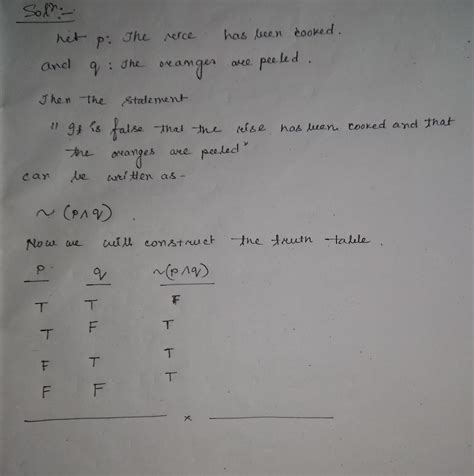 Solⁿ:-
Let p: The rice has been cooked.
and q: The oranges are peeled.
Then the statement
"It is false that the rise has been cooked and that
the oranges are peeled"
can be written as -
~ (p∧q).
Now we will construct the truth table.
p q ~(p∧q)
T T F
T F T
F T T
F F T
x